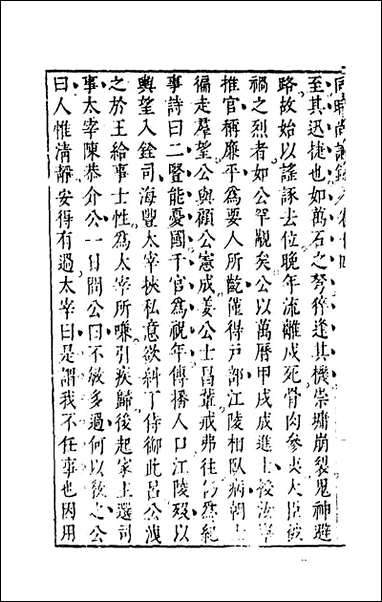 同時尚論錄卷十四
至其迅捷也如萬石之弩倅逢其機崇墉崩裂鬼神避
路故始以謠諑去位晚年流離戍死骨肉參喪大臣被
禍之烈者如公罕覯矣公以萬曆甲戌成進士授
推官稱廉平為要人所齕僅得戸部江陵相臥病朝士
徧走羣望公與顧公憲成姜公士昌輩戒弗往為紀
事詩曰二豎能憂國千官為祝年傳播人口江陵歿以
輿望入銓司海豐太宰挾私意欲糾丁侍御此呂公洩
之於王給事士性為太宰所嗛引疾歸後起家主選司
事太宰陳恭介公一日問公曰不佞多過何以敎之公
曰人惟淸靜安得有過太宰曰是謂我不任事也因用